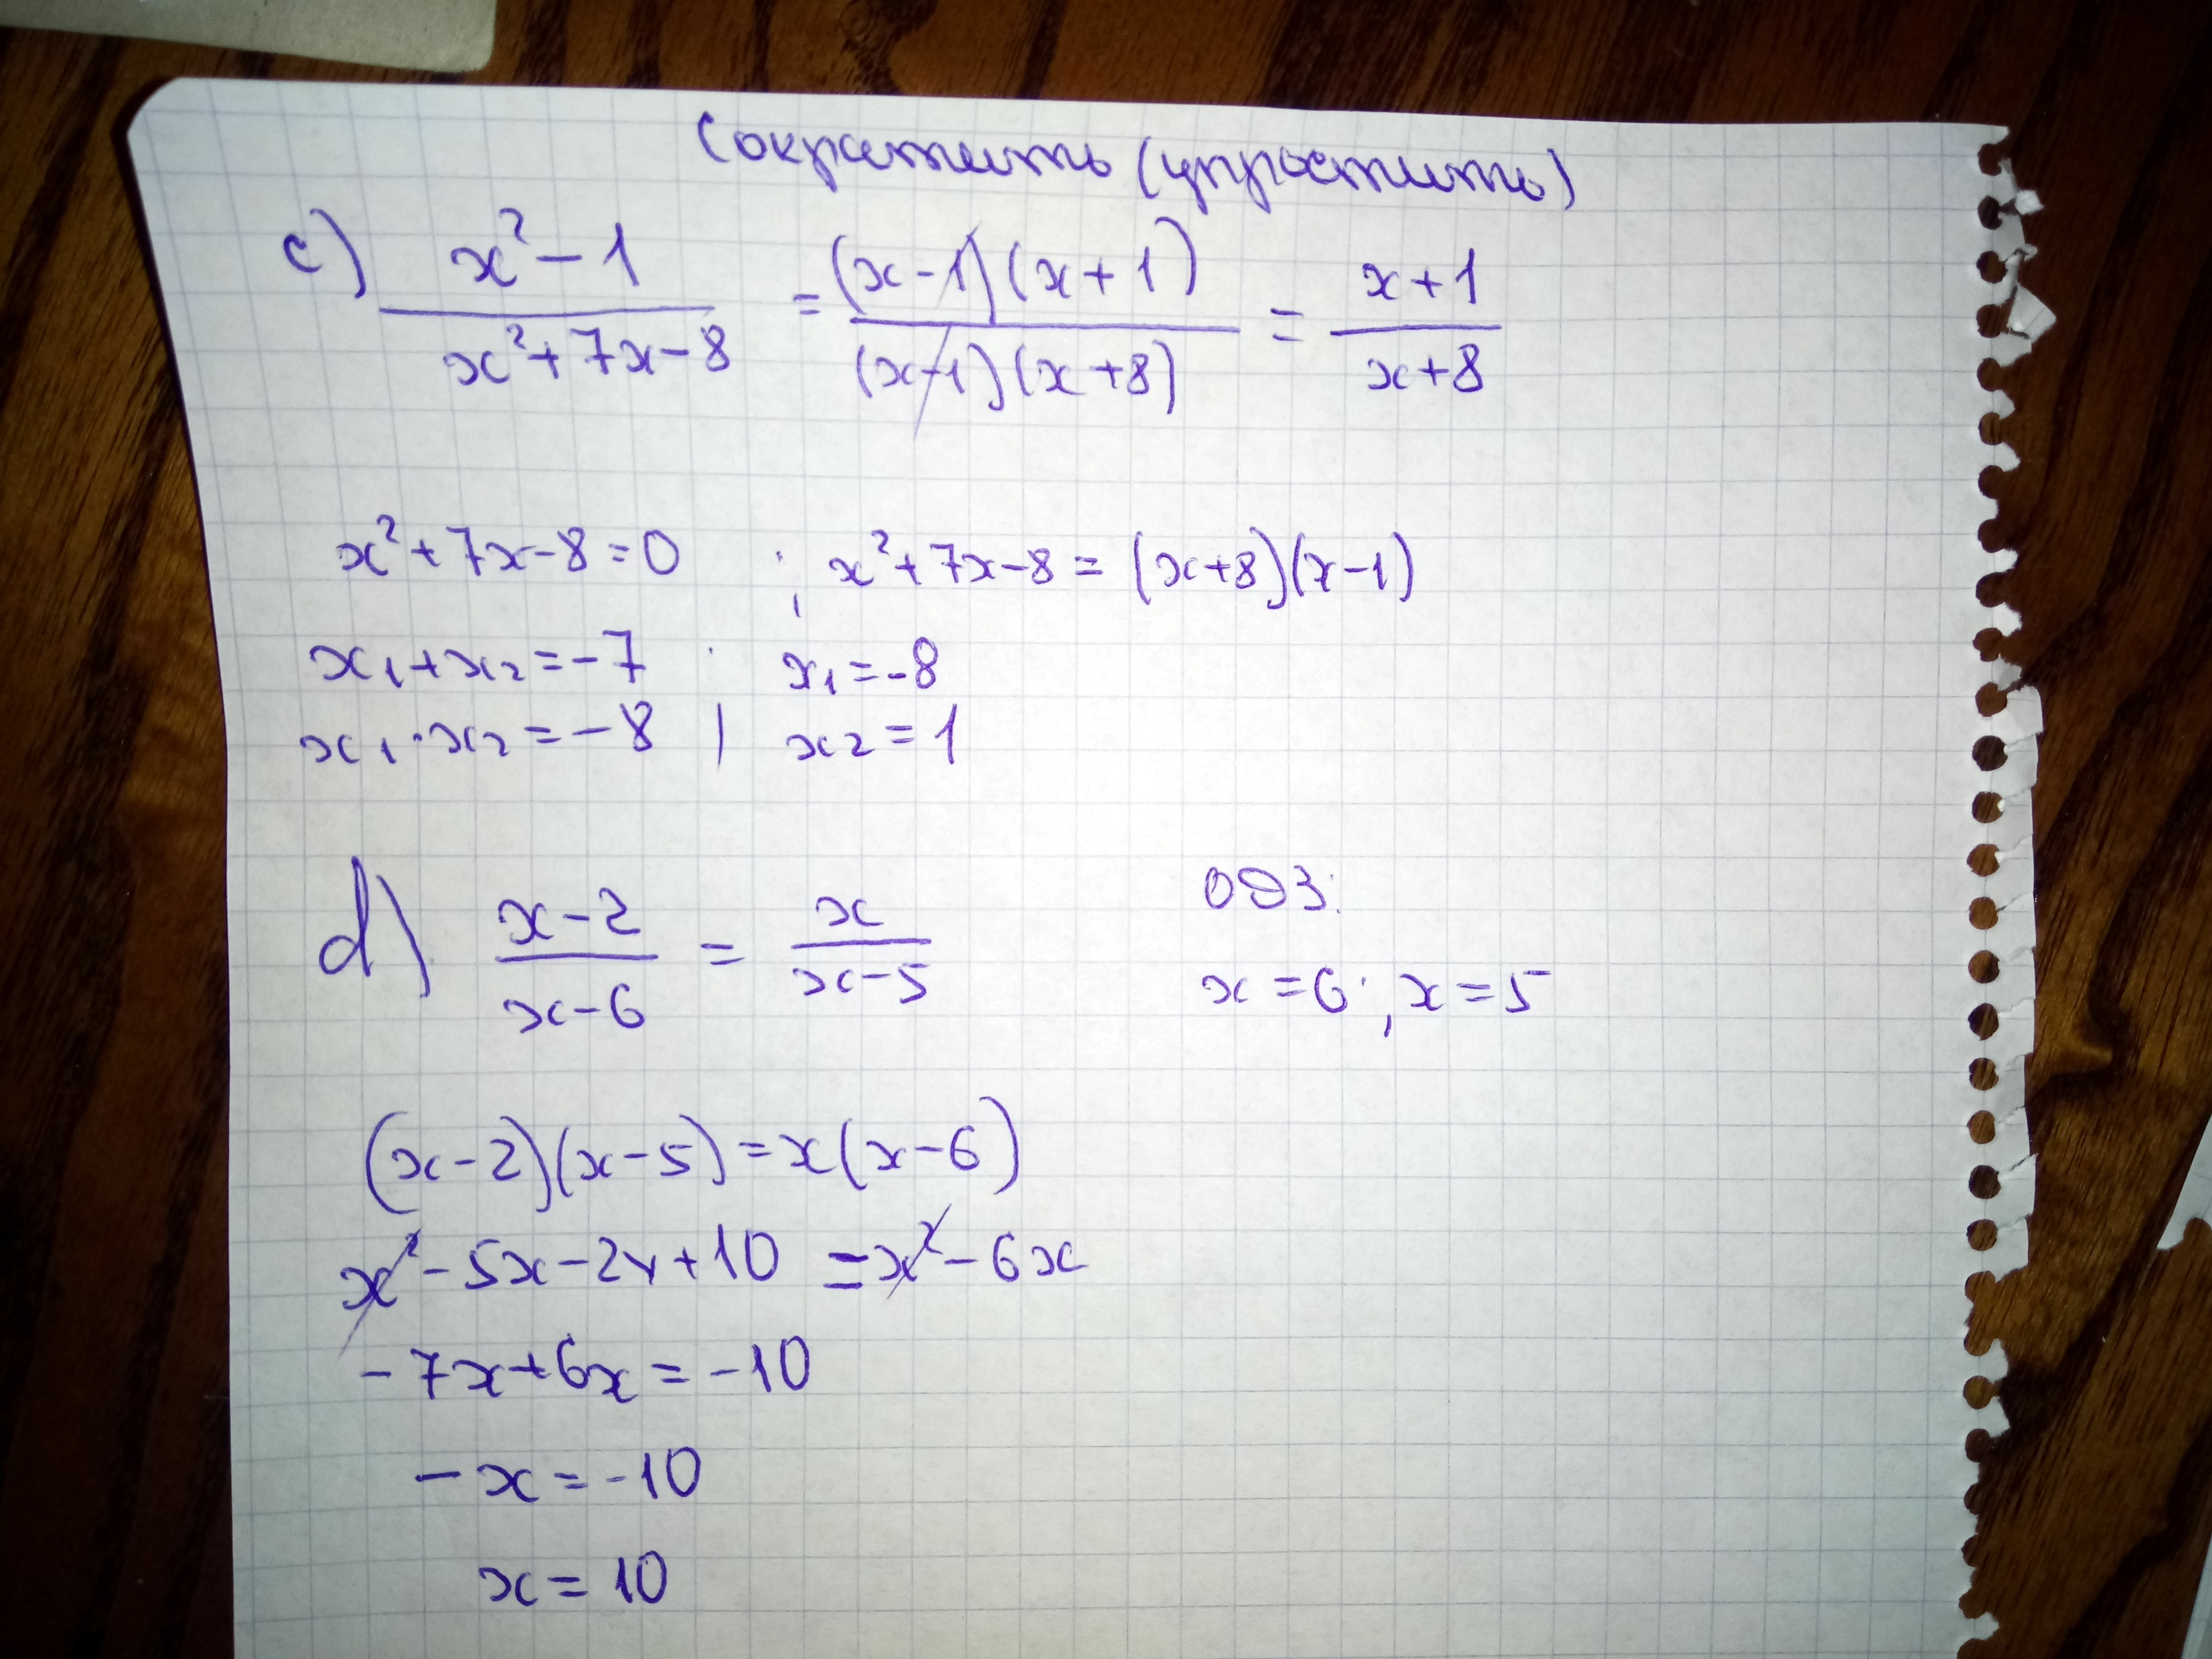 Сократить (упростить)
c) x²-1 / x²+7x-8 = (x-1)(x+1) / (x-1)(x+8) = x+1 / x+8
x²+7x-8=0 ; x²+7x-8=(x+8)(x-1)
x₁+x₂=-7 x₁=-8
x₁·x₂=-8 | x₂=1
d) x-2 / x-6 = x / x-5 ОДЗ:
x=6; x=5
(x-2)(x-5)=x(x-6)
x²-5x-2x+10=x²-6x
-7x+6x=-10
-x=-10
x=10